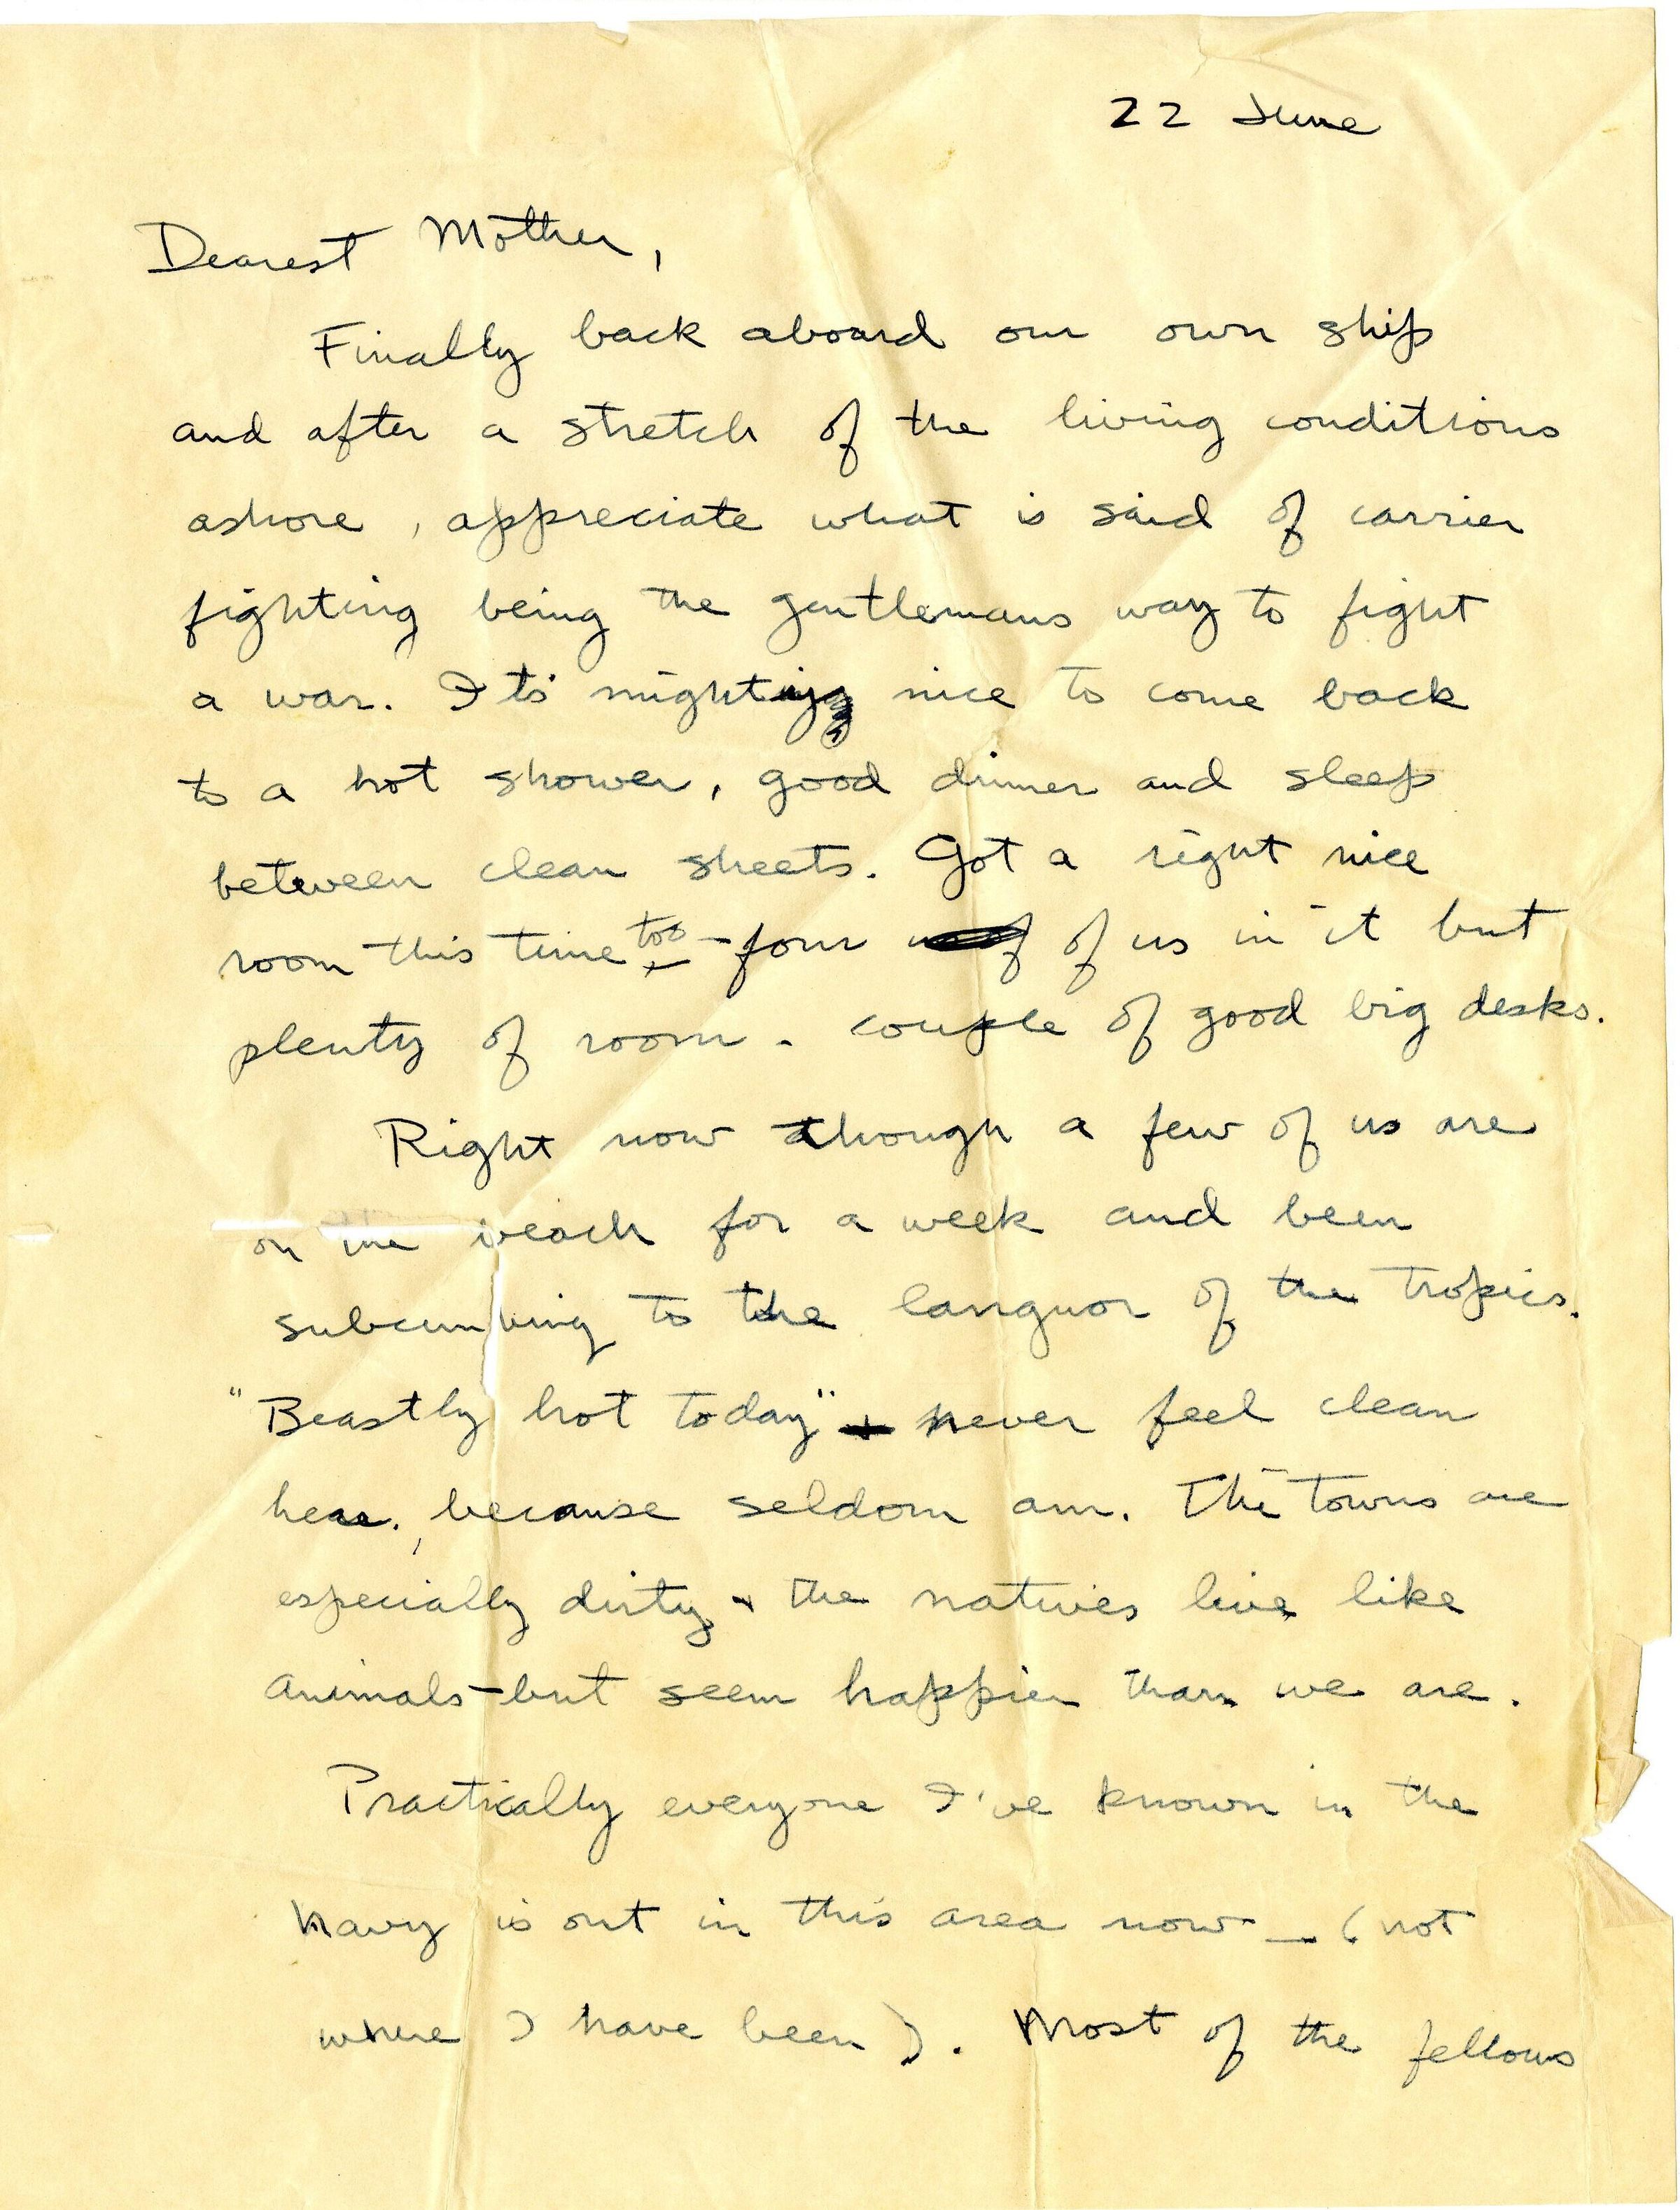 22 June
Dearest Mother,
Finally back aboard our own ship
and after a stretch of the living conditions
ashore, appreciate what is said of carrier
fighting being the gentlemans way to fight
a war. Its' mighty nice to come back
to a hot shower, good dinner and sleep
between clean sheets. Got a right nice
room this time too - four of us in it but
plenty of room - couple of good big desks.
Right now though a few of us are
on the beach for a week and been
subcumbing to the languor of the tropics.
"Beastly hot today" never feel clean
here, because seldom am. The towns are
especially dirty + the natives live like
animals - but seem happier than we are.
Practically everyone I've known in the
Navy is out in this area now - (not
where I have been). Most of the fellows